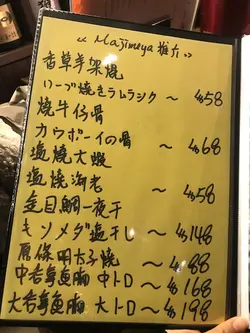 《 Majimeya 推介 》
香草羊架燒
ハーブ焼きラムラック ～ $58
燒牛仔骨
カウボーイの骨 ～ $68
塩燒大蝦
塩焼海老 ～ $58
金目鯛一夜干
キンメダ塩干し ～ $148
明太子燒 ～ $88
中吞拿魚腩 中トロ ～ $168
大吞拿魚腩 大トロ ～ $198